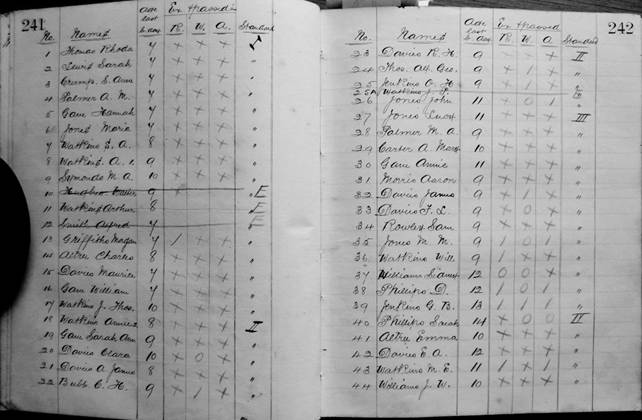 241
No. Names Age last b.day Ex Passed Standard
R. W. A.
1 Thomas Rhoda 7 x x x I
2 Lewis Sarah 7 x x x "
3 Crump E. Annie 7 x x x "
4 Palmer A. M. 7 x x x "
5 Game Hannah 7 x x x "
6 Jones Maria 7 x x x "
7 Watkins S. A. 8 x x x "
8 Watkins A. 1. 9 x x x "
9 Symonds M. A. 10 x x x "
10 Hughes 9 x " E
11 Watkins Arthur 8 " E
12 Smith Alfred 7 " E
13 Griffiths 7 1 x x "
14 Aitree Charles 8 x x x "
15 Davies Maurice 7 x x x "
16 Game William 7 x x x "
17 Watkins J. Thos. 10 x x x "
18 Watkins Annie 8 x x x II
19 Game Sarah Ann 9 x x x "
20 Davies Clara 10 x 0 x "
21 Davies A. James 8 x x x "
22 Bubb C. H. 9 x 1 x "
242
No. Names Age last b.day Ex Passed Standard
R W A
23 Davies R. H. 9 x x II
24 Thos. Alf. Geo. 9 x 1 x "
25 Jenkins A. H. 9 x x x
25A Watkins J.
26 Jones John 11 x 0 1 "
27 Jones 11 x x x III
28 Palmer M. A. 9 x x x "
29 Carter A. Mary 10 x x x "
30 Game Annie 11 x x x "
31 Morris Aaron 9 x x x "
32 Davies James 9 x 1 x "
33 Davies F. L. 9 x 0 x "
34 Rowley Sam 9 x x x "
35 Jones M. M. 9 1 0 1 "
36 Watkins Will 9 1 x x "
37 Williams 12 0 0 x "
38 Phillips D. 12 1 0 1 "
39 Jenkins G. B. 13 1 1 1 "
40 Phillips Sarah 14 x 0 0 IV
41 Aitree Emma 10 x x x "
42 Davies E. A. 12 x x x "
43 Watkins M. E. 11 1 x 1 "
44 Williams J. W. 10 x x x "